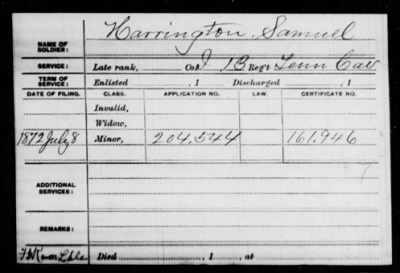 NAME OF SOLDIER: Harrington, Samuel
SERVICE: Late rank, Co. I 13 Reg't Tenn Cav
TERM OF SERVICE: Enlisted , 1 Discharged , 1
DATE OF FILING. CLASS. APPLICATION NO. LAW. CERTIFICATE NO.
Invalid,
Widow,
1872 July 8 Minor, 204,544 161,946
ADDITIONAL SERVICES:
REMARKS:
Died , 1 , at